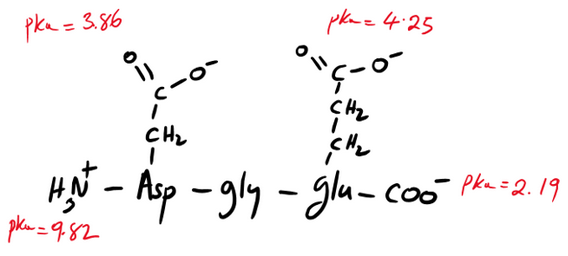 pka = 3.86
pka = 4.25
O O⁻ O O⁻
C C
CH₂ CH₂
CH₂
H₃N⁺ – Asp – gly – glu – COO⁻ pka = 2.19
pka = 9.82